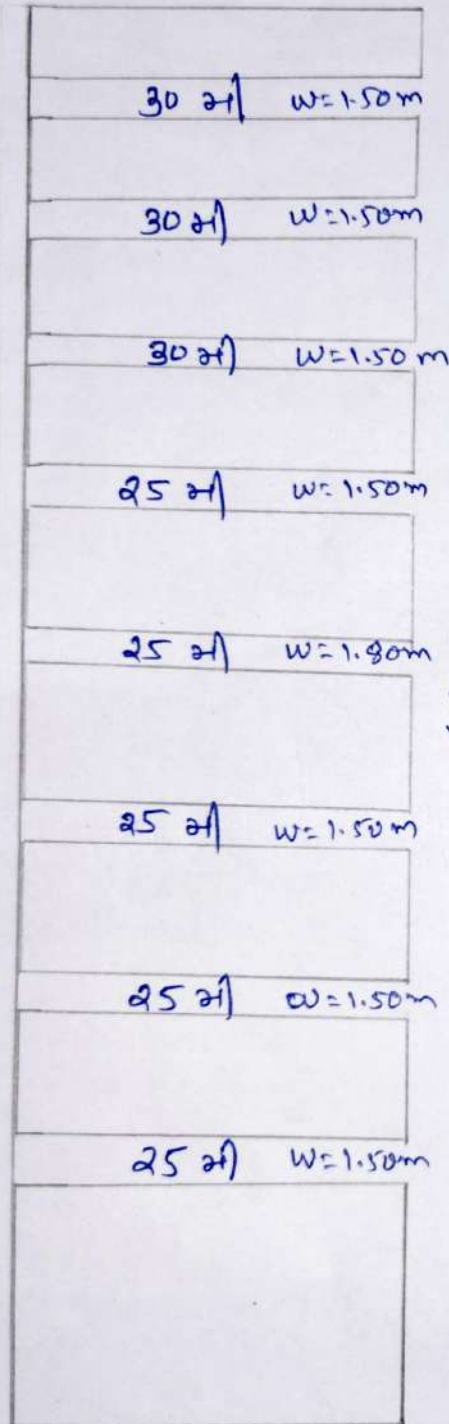 30 मी W=1.50m
30 मी W=1.50m
30 मी W=1.50 m
25 मी W=1.50m
25 मी W=1.80m
25 मी W=1.50m
25 मी W=1.50m
25 मी W=1.50m